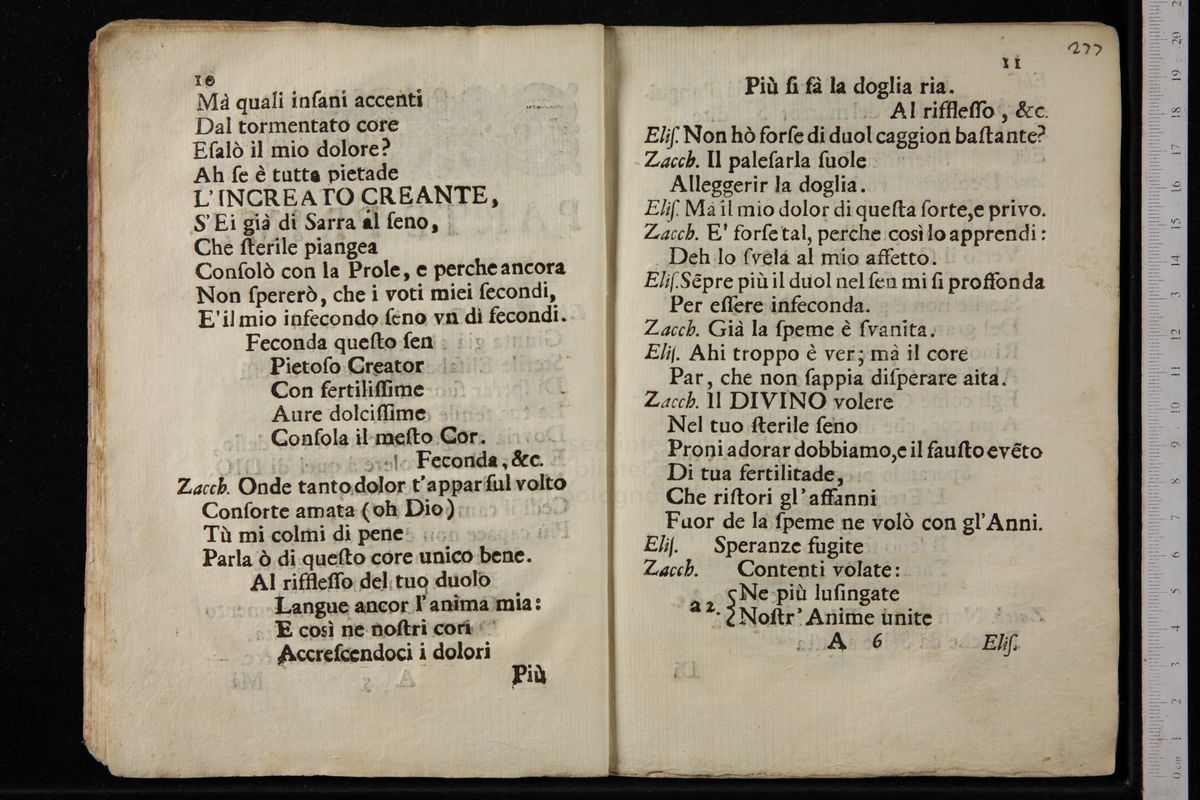 10
Mà quali inſani accenti
Dal tormentato core
Eſalò il mio dolore?
Ah ſe è tutta pietade
L'INCREATO CREANTE,
S'Ei già di Sarra il ſeno,
Che ſterile piangea
Conſolò con la Prole, e perche ancora
Non ſpererò, che i voti miei ſecondi,
E' il mio infecondo ſeno vn dì fecondi.
Feconda queſto ſen
Pietoſo Creator
Con fertiliſſime
Aure dolciſſime
Conſola il meſto Cor.
Feconda, &c.
Zacch. Onde tanto dolor t'appar ſul volto
Conſorte amata (oh Dio)
Tù mi colmi di pene
Parla ò di queſto core unico bene.
Al riffleſſo del tuo duolo
Langue ancor l'anima mia:
E così ne noſtri cori
Accreſcendoci i dolori
Più
277
11
Più ſi fà la doglia ria.
Al riffleſſo, &c.
Eliſ. Non hò forſe di duol caggion baſtante?
Zacch. Il paleſarla ſuole
Alleggerir la doglia.
Eliſ. Mà il mio dolor di queſta ſorte,e privo.
Zacch. E' forſe tal, perche così lo apprendi:
Deh lo ſvela al mio affetto.
Eliſ. Sẽpre più il duol nel ſen mi ſi proffonda
Per eſſere infeconda.
Zacch. Già la ſpeme è ſvanita.
Eliſ. Ahi troppo è ver; mà il core
Par, che non ſappia diſperare aita.
Zacch. Il DIVINO volere
Nel tuo ſterile ſeno
Proni adorar dobbiamo,e il fauſto evẽto
Di tua fertilitade,
Che riſtori gl'affanni
Fuor de la ſpeme ne volò con gl'Anni.
Eliſ. Speranze fugite
Zacch. Contenti volate:
a 2. Ne più luſingate
Noſtr' Anime unite
A 6 Eliſ.